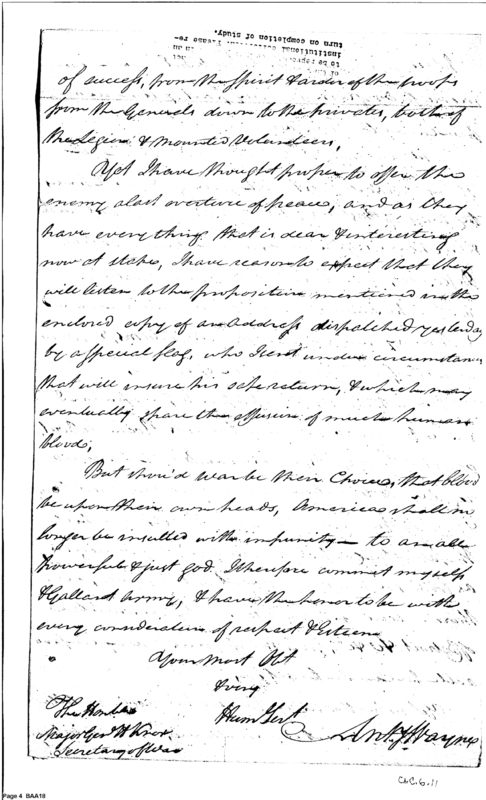 of success, from the spirit & ardor of the troops
from the Generals down to the privates, both of
the Legion & mounted Volunteers,
Yet I have thought proper to offer the
enemy a last overture of peace, and as they
have everything that is dear & interesting
now at stake, I have reason to expect that they
will listen to the proposition mentioned in the
enclosed copy of an Address dispatched yesterday
by a special flag, who I sent under circumstances
that will insure his safe return, & which may
eventually spare the effusion of much human
blood,
But shou'd war be their Choice, that blood
be upon their own heads, America shall no
longer be insulted with impunity — to an all
powerful & just god I therefore commit myself
& Gallant Army, & have the honor to be with
every consideration of respect & Esteem
Your Most Obt
& very
Hum Sert
Anty Wayne
The Honble
Major Genl H Knox
Secretary of War
turn on completion of study.
Page 4 BAA18